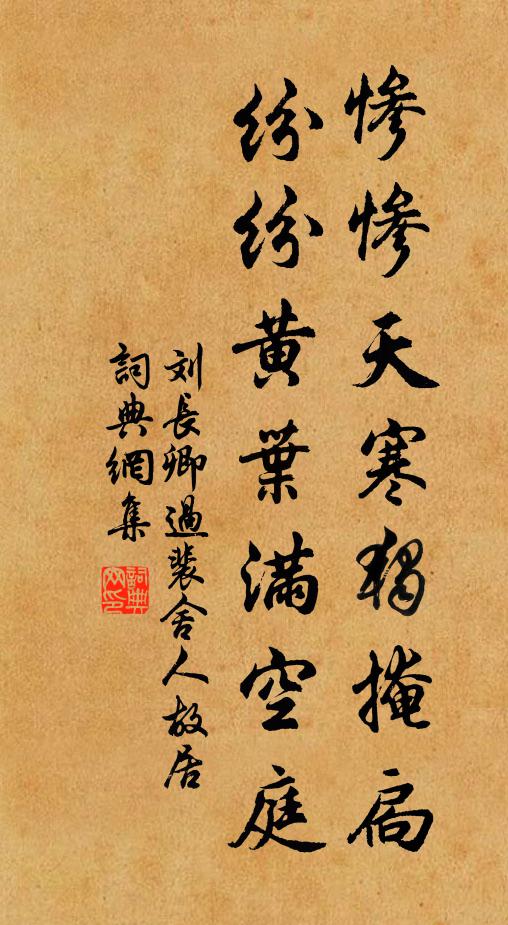 惨惨天寒独掩扃
纷纷黄葉满空庭
刘長卿過裴舍人故居
詞典網集
詞典网印